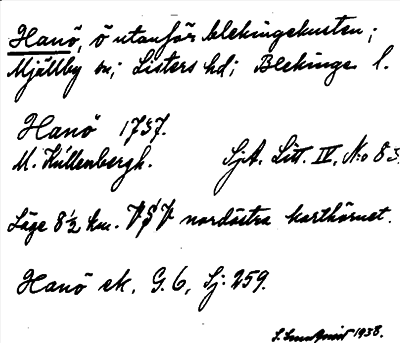 Hanö, ö utanför blekingekusten;
Mjällby sn; Listers hd; Blekinge l.
Hanö 1737.
M. Kullenbergh. SjA. Litt. IV, No 83.
Läge 8½ km. VSV nordöstra karthörnet.
Hanö ek. G. 6, Sj: 259.
1938.